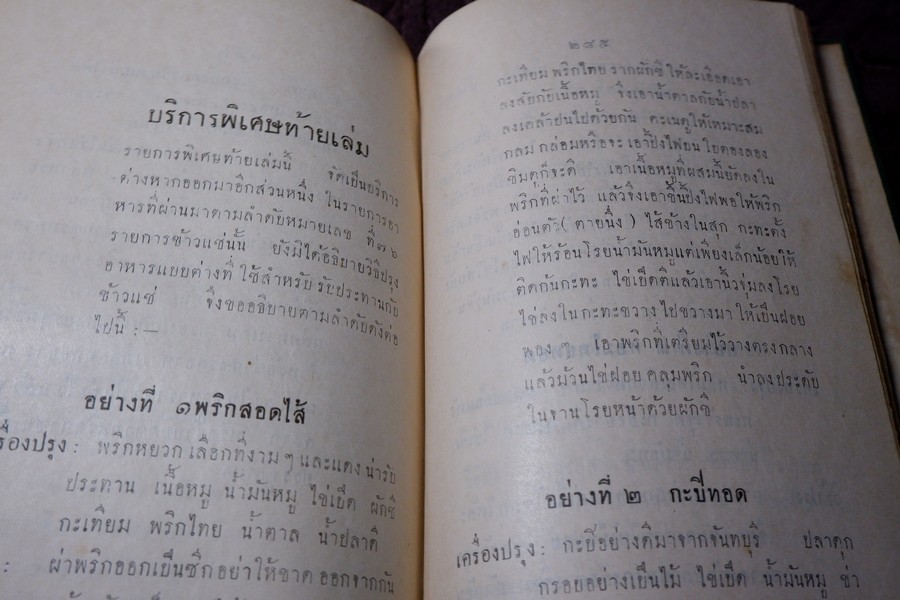 บริการพิเศษท้ายเล่ม
รายการพิเศษท้ายเล่มนี้ จัดเป็นบริการ
ต่างหากออกมาอีกส่วนหนึ่ง ในรายการอา
หารที่ผ่านมาตามลำดับหมายเลข ที่๗๖
รายการข้าวแช่นั้น ยังมิได้อธิบายวิธีปรุง
อาหารแบบต่างที่ ใช้สำหรับ รับประทานกับ
ข้าวแช่ จึงขออธิบายตามลำดับดังต่อ
ไปนี้ :—
อย่างที่ ๑พริกสอดไส้
เครื่องปรุง : พริกหยวก เลือกที่งาม ๆ และแดง น่ารับ
ประทาน เนื้อหมู น้ำมันหมู ไข่เป็ด ผักชี
กะเทียม พริกไทย น้ำตาล น้ำปลาดี
: ผ่าพริกออกเป็นซีกอย่าให้ขาด ออกจากกัน
๒๘๕
กะเทียม พริกไทย รากผักชี ให้ละเอียดเอา
ลงสับกับเนื้อหมู จึงเอาน้ำตาลกับน้ำปลา
ลงเคล้าปนไปด้วยกัน คะเนดูให้เหมาะสม
กลมกล่อมหรือจะ เอาปิ้งไฟบนใบตองลอง
ชิมดูก็จะดี เอาเนื้อหมูที่ผสมนี้ยัดลงใน
พริกที่ผ่าไว้ แล้วจึงเอาขึ้นปิ้งไฟพอให้พริก
อ่อนตัว( ตายนึ่ง ) ไส้ข้างในสุก กะทะตั้ง
ไฟให้ร้อนโรยน้ำมันหมูแต่เพียงเล็กน้อยให้
ติดก้นกะทะ ไข่เป็ดตีแล้วเอานิ้วจุ่มลงโรย
ไข่ลงในกะทะขวางไปขวางมา ให้เป็นฝอย
พอง ๆ เอาพริกที่เตรียมไว้วางตรงกลาง
แล้วม้วนไข่ฝอย คลุมพริก นำลงประดับ
ในจานโรยหน้าด้วยผักชี
อย่างที่ ๒ กะปิทอด
เครื่องปรุง : กะปิอย่างดีมาจากจันทบุรี ปลาดุก
กรอบอย่างเป็นไม้ ไข่เป็ด น้ำมันหมู ข่า